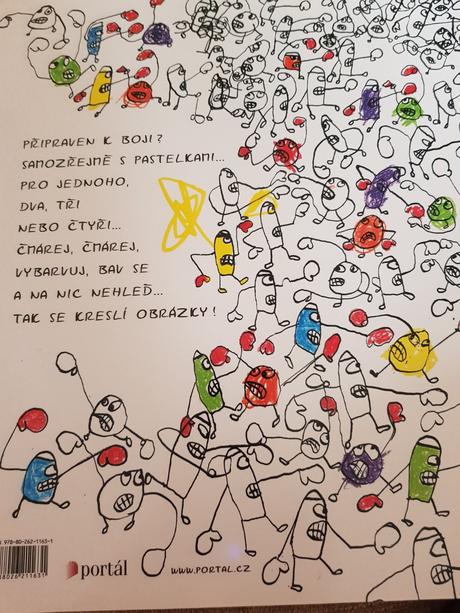 PŘIPRAVEN K BOJI?
SAMOZŘEJMĚ S PASTELKAMI...
PRO JEDNOHO,
DVA, TŘI
NEBO ČTYŘI...
ČMÁREJ, ČMÁREJ,
VYBARVUJ, BAV SE
A NA NIC NEHLEĎ...
TAK SE KRESLÍ OBRÁZKY!
978-80-262-1163-1
8026211631
portál
WWW.PORTAL.CZ